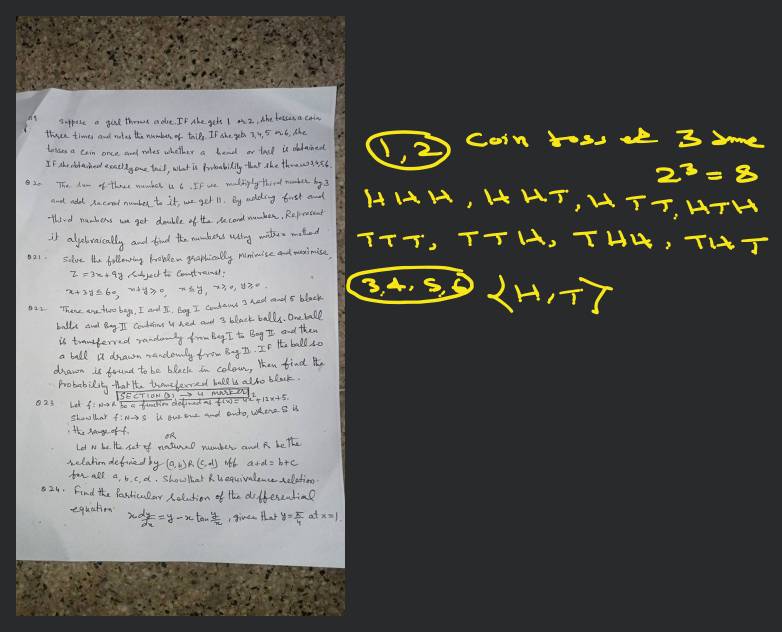 Suppose a girl throws a die. If she gets 1 or 2, she tosses a coin
three times and notes the number of tails. If she gets 3,4,5 or 6, she
tosses a coin once and notes whether a head or tail is obtained
If she obtained exactly one tail, what is probability that she threw 3,4,5,6.
Q20. The sum of three number is 6. If we multiply third number by 3
and add second number to it, we get 11. By adding first and
third numbers we get double of the second number. Represent
it algebraically and find the numbers using matrix method
Q21. Solve the following problem graphically Minimise and maximise,
Z = 3x + 9y, Subject to Constraint:
x+3y ≤ 60, x+y ≥ 0, x ≤ y, x ≥ 0, y ≥ 0.
Q22. There are two bags, I and II. Bag I contains 3 red and 5 black
balls and Bag II contains 4 red and 3 black balls. One ball
is transferred randomly from Bag I to Bag II and then
a ball is drawn randomly from Bag II. If the ball so
drawn is found to be black in colour, then find the
Probability that the transferred ball is also black.
SECTION(D) → 4 MARKER
Q23. Let f: N→R be a function defined as f(x) = 4x²+12x+5.
Show that f: N→S is one one and onto, where S is
the range of f.
OR
Let N be the set of natural number and R be the
relation defined by (a,b) R (c,d) iff a+d = b+c
for all a, b, c, d. Show that R is equivalence relation.
Q24. Find the Particular solution of the differential
equation x dy/dx = y - x tan y/x, given that y = π/4 at x=1.
1,2 Coin toss 3
2³ = 8
HHH, HHT, HTT, HTH
TTT, TTH, THH, THT
3,4,5,6 {H,T}